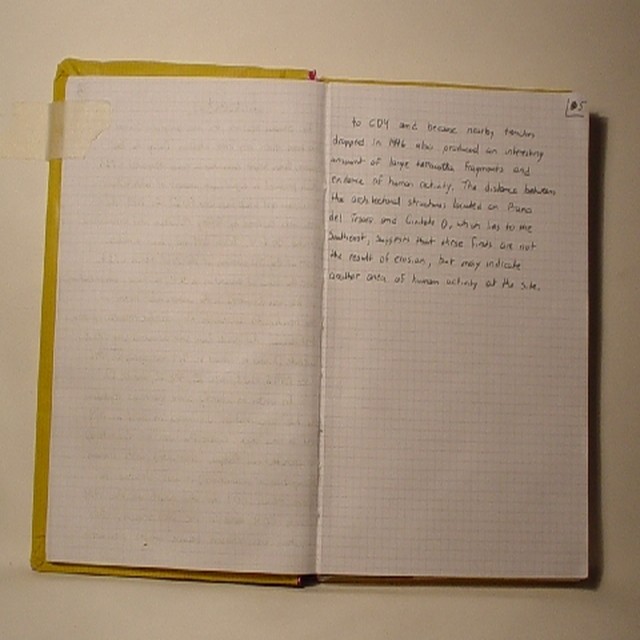 5
to CD4 and because nearby trenches
dropped in 1996 also produced an interesting
amount of large terracotta fragments and
evidence of human activity. The distance between
the architectural structures located on Piano
del Tesoro and Civitate D, which lies to the
Southeast, suggests that these finds are not
the result of erosion, but may indicate
another area of human activity at the site.